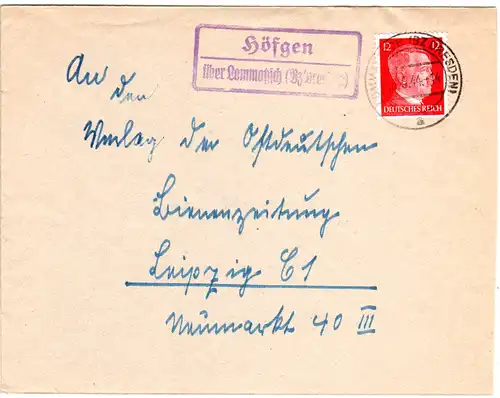 Höfgen
über Lommatzsch (Bz Dresden)
12 12
DEUTSCHES REICH
DRESDEN)
a
An
den
Verlag der Ostdeutschen
Bienenzeitung
Leipzig C1
Neumarkt 40 III